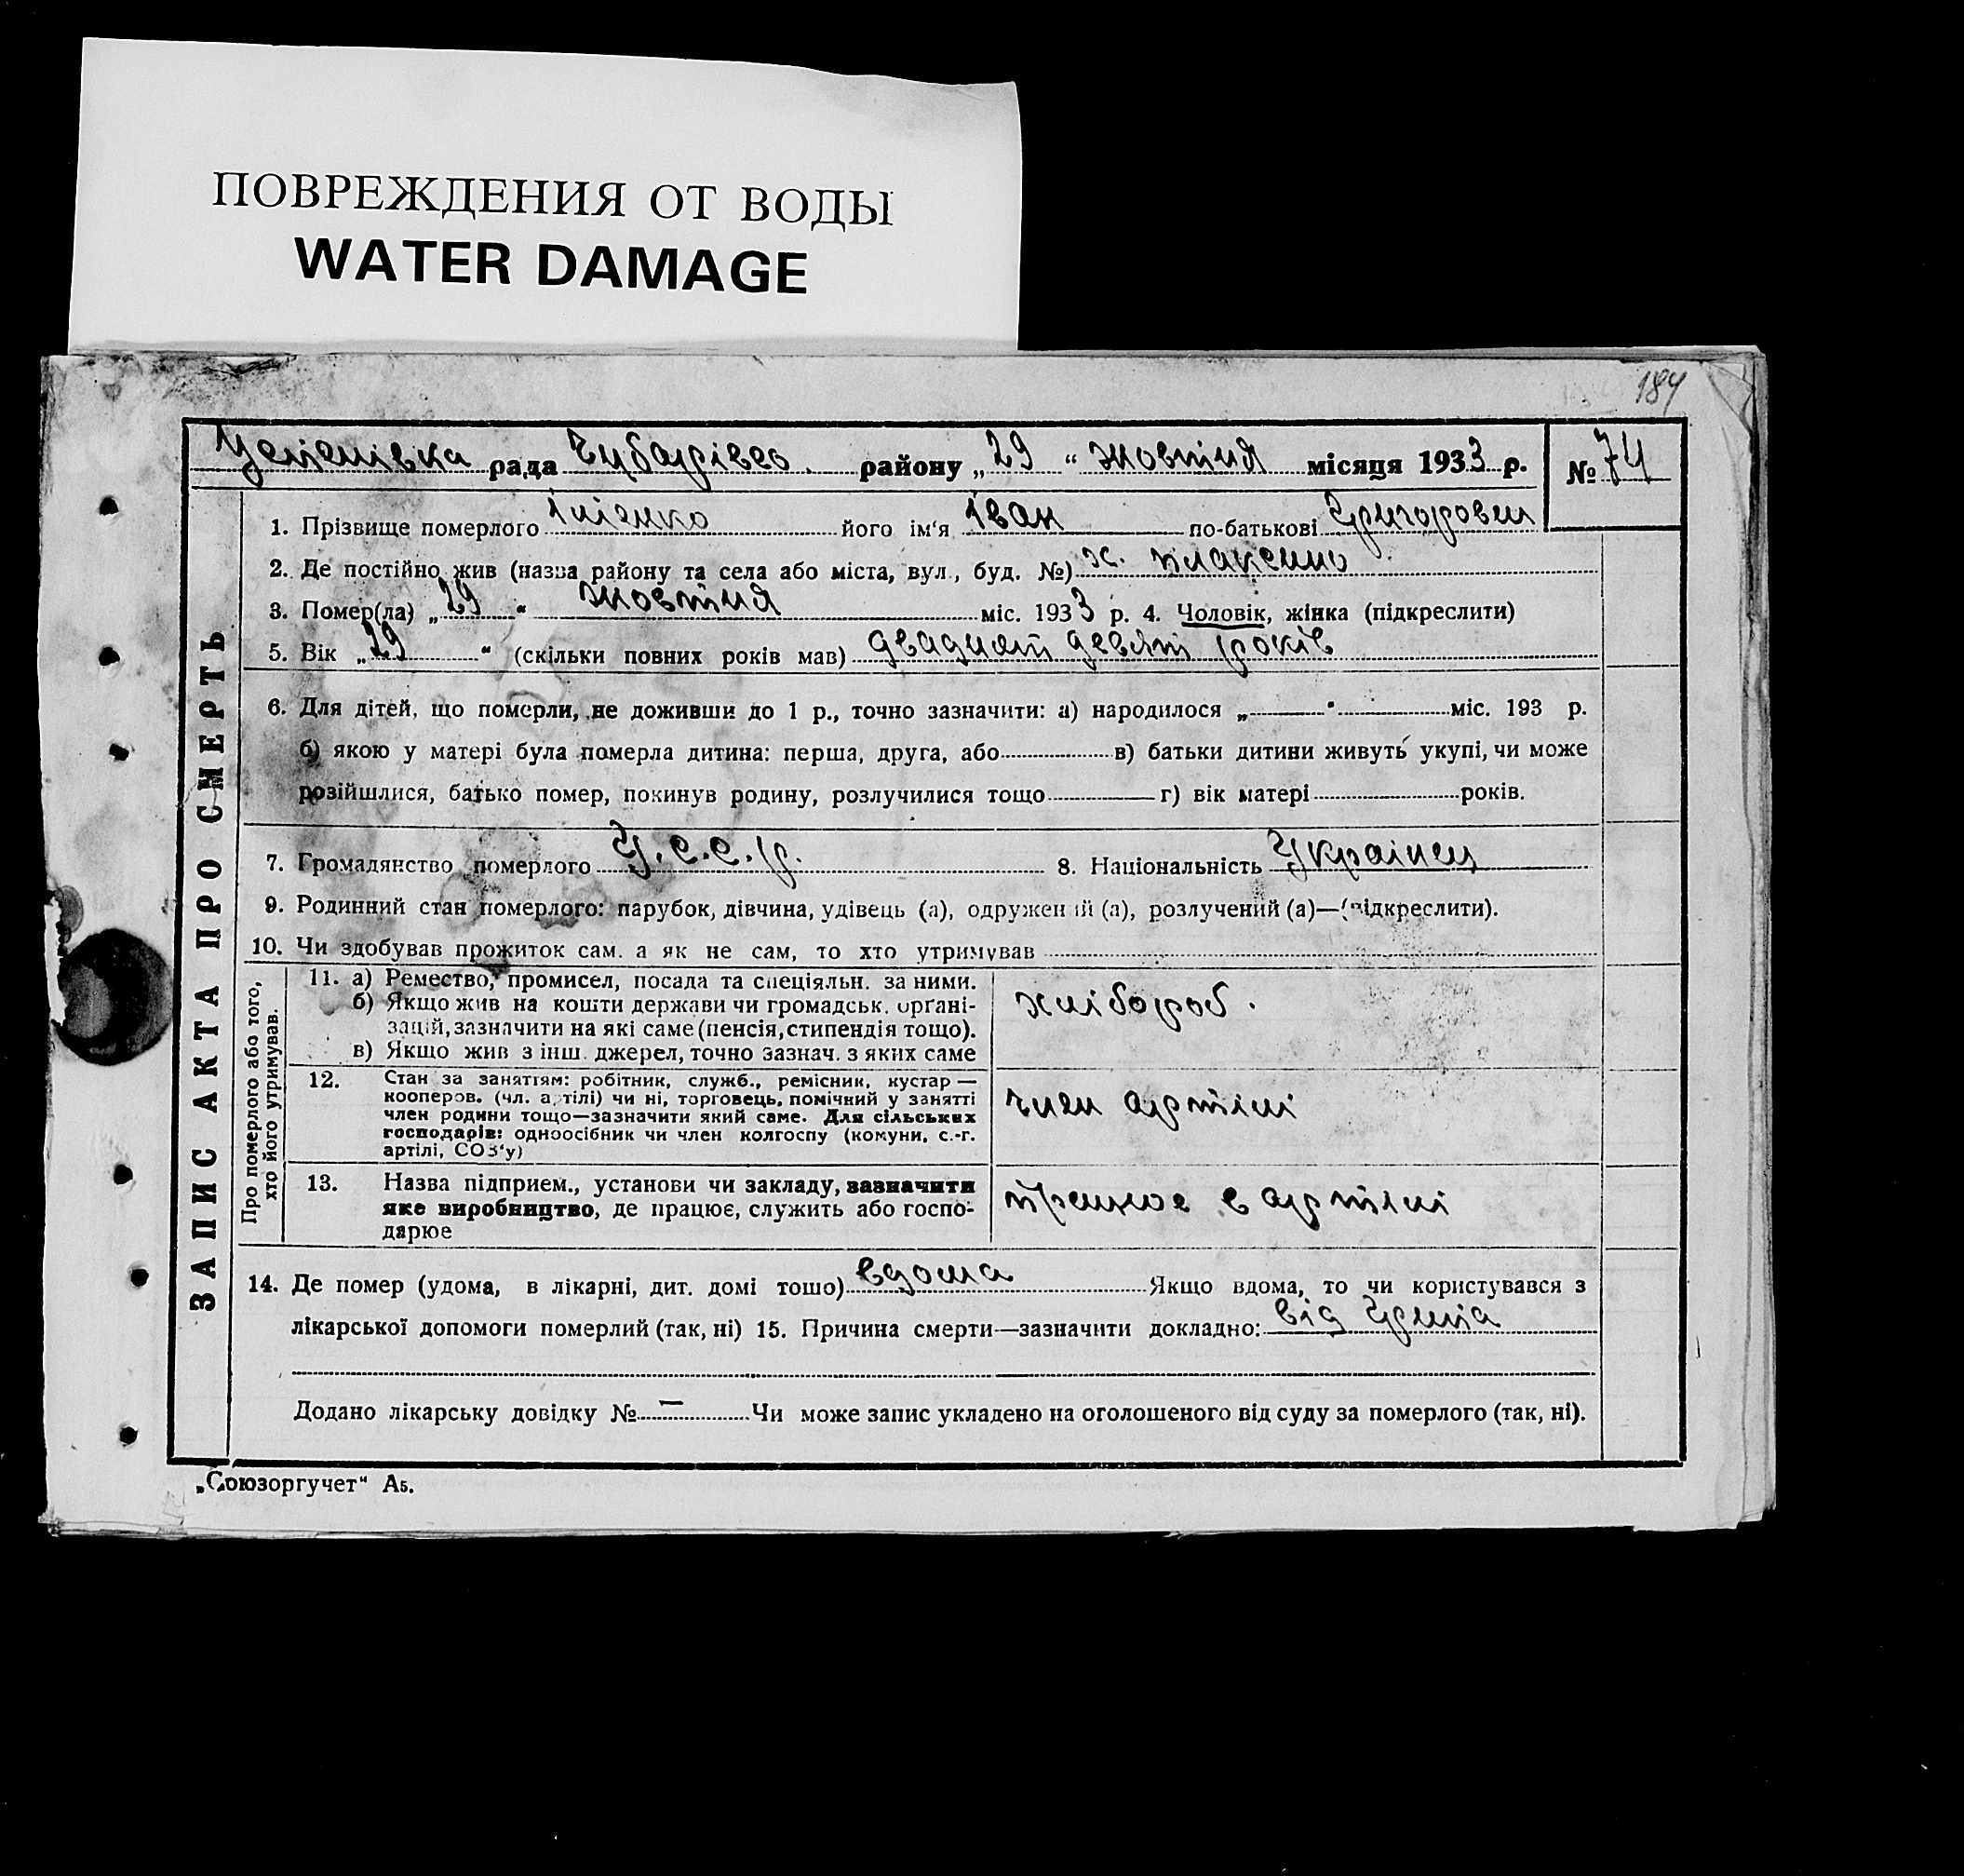 ПОВРЕЖДЕНИЯ ОТ ВОДЫ
WATER DAMAGE
184
рада Чубарівсо району „29“ жовтня місяця 1933 р. № 74
ЗАПИС АКТА ПРО СМЕРТЬ
1. Прізвище померлого Ілієнко його ім‘я Іван по-батькові Григорович
2. Де постійно жив (назва району та села або міста, вул., буд. №) х.
3. Помер(ла) „29“ жовтня міс. 1933 р. 4. Чоловік, жінка (підкреслити)
5. Вік „29“ (скільки повних років мав) двадцят девят років
6. Для дітей, що померли, не доживши до 1 р., точно зазначити: а) народилося „ “ міс. 193 р.
б) якою у матері була померла дитина: перша, друга, або в) батьки дитини живуть укупі, чи може
розійшлися, батько помер, покинув родину, розлучилися тощо г) вік матері років.
7. Громадянство померлого У.С.С.Р. 8. Національність Українец
9. Родинний стан померлого: парубок, дівчина, удівець (а), одружений (а), розлучений (а)—(підкреслити).
10. Чи здобував прожиток сам, а як не сам, то хто утримував
Про померлого або того, хто його утримував.
11. а) Ремество, промисел, посада та спеціяльн. за ними.
б) Якщо жив на кошти держави чи громадськ. орґані-
зацій, зазначити на які саме (пенсія, стипендія тощо).
в) Якщо жив з інш. джерел, точно зазнач. з яких саме
хлібороб.
12. Стан за заняттям: робітник, служб., ремісник, кустар —
кооперов. (чл. артілі) чи ні, торговець, помічний у занятті
член родини тощо—зазначити який саме. Для сільських
господарів: одноосібник чи член колгоспу (комуни, с.-г.
артілі, СОЗ‘у)
член артілі
13. Назва підприєм., установи чи закладу, зазначити
яке виробництво, де працює, служить або госпо-
дарює
працює в артілі
14. Де помер (удома, в лікарні, дит. домі тощо) вдома Якщо вдома, то чи користувався з
лікарської допомоги померлий (так, ні) 15. Причина смерти—зазначити докладно: від
Додано лікарську довідку № — Чи може запис укладено на оголошеного від суду за померлого (так, ні).
„Союзоргучет“ А5.